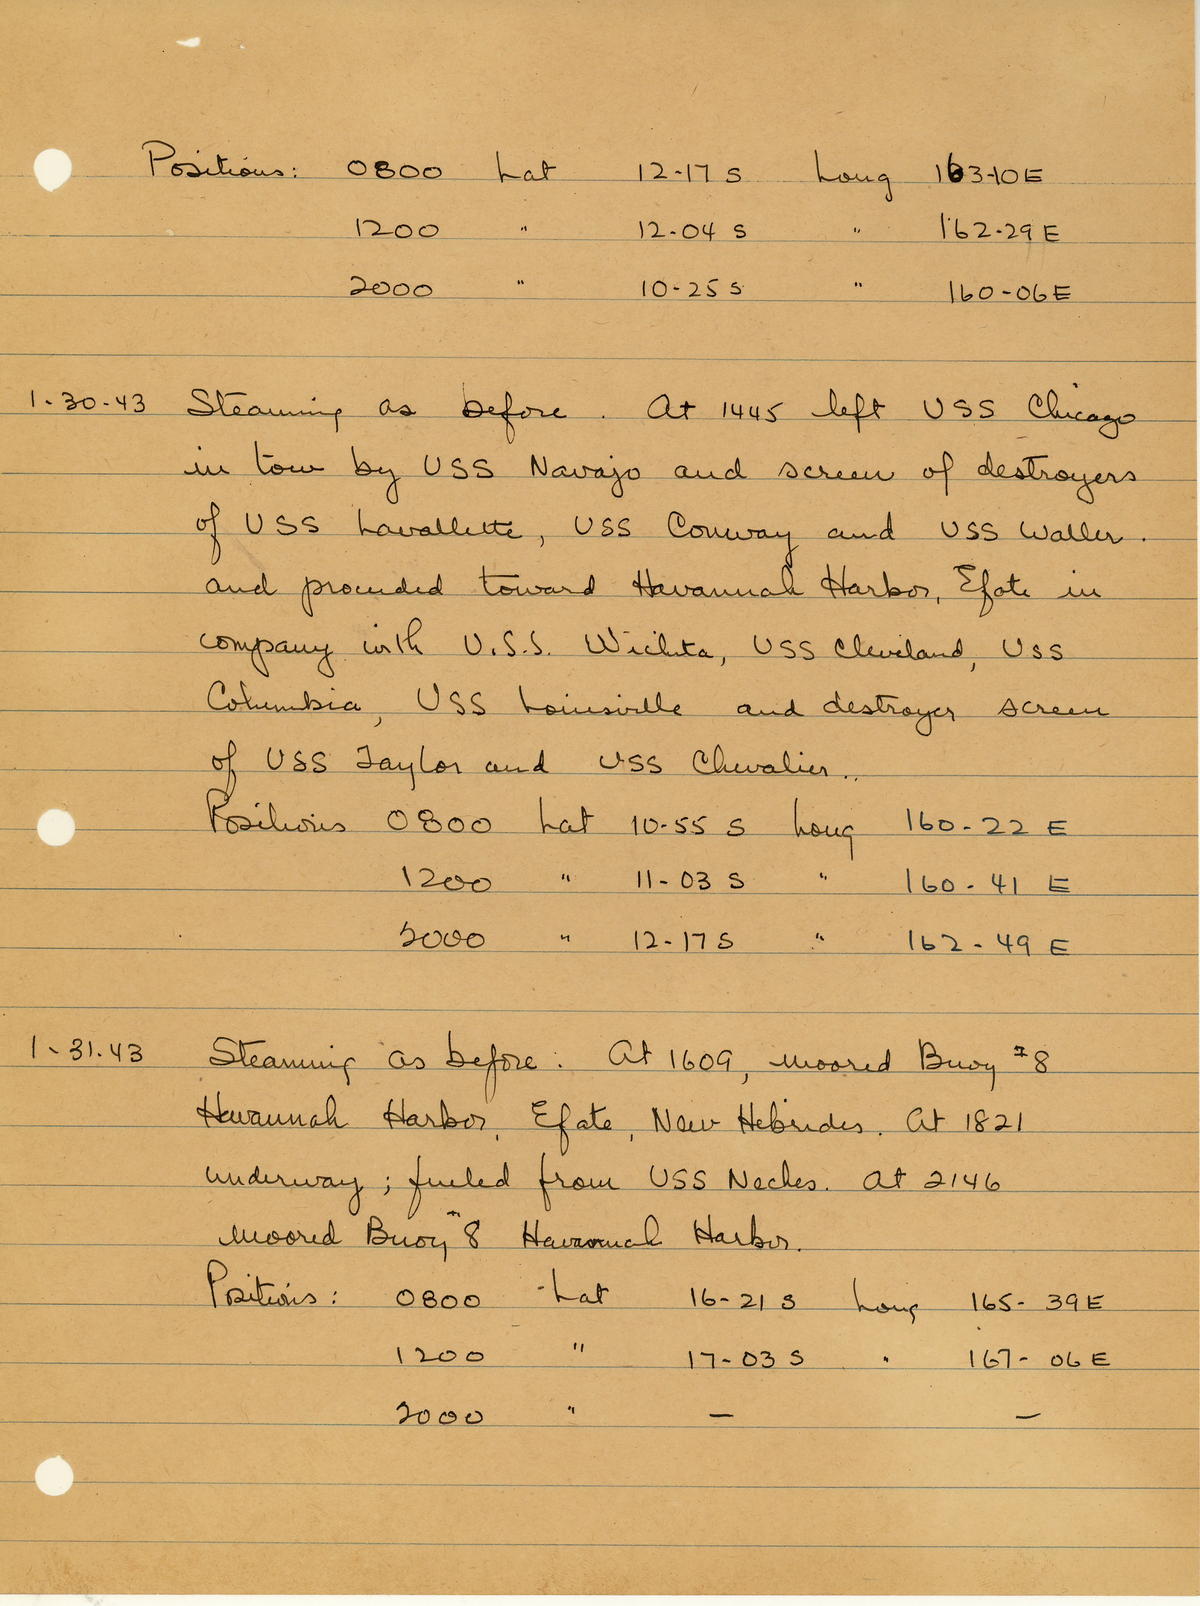 Positions: 0800 Lat 12-17 S Long 163-10 E
1200 " 12-04 S " 162-29 E
2000 " 10-25 S " 160-06 E
1-30-43 Steaming as before. At 1445 left USS Chicago
in tow by USS Navajo and screen of destroyers
of USS Lavallette, USS Conway and USS Waller.
and proceeded toward Havannah Harbor, Efate in
company with U.S.S. Wichita, USS Cleveland, USS
Columbia, USS Louisville and destroyer screen
of USS Taylor and USS Chevalier..
Positions 0800 Lat 10-55 S Long 160-22 E
1200 " 11-03 S " 160-41 E
2000 " 12-17 S " 162-49 E
1-31-43 Steaming as before. At 1609, moored Buoy #8
Havannah Harbor, Efate, New Hebrides. At 1821
underway; fueled from USS Neches. At 2146
moored Buoy #8 Havannah Harbor.
Positions: 0800 Lat 16-21 S Long 165-39 E
1200 " 17-03 S " 167-06 E
2000 " — —